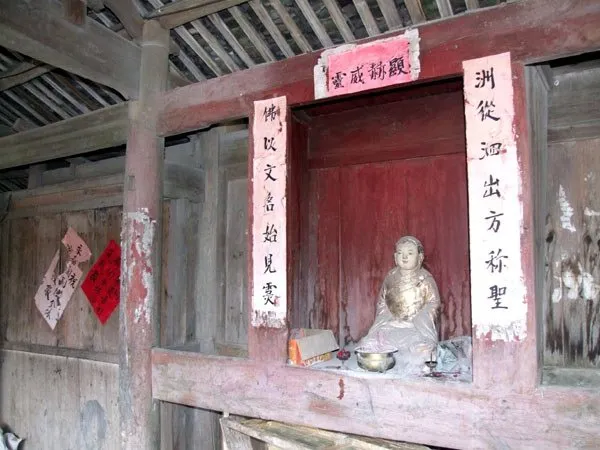 顯赫威靈
洲從泗出方称聖
佛以文名始見虔